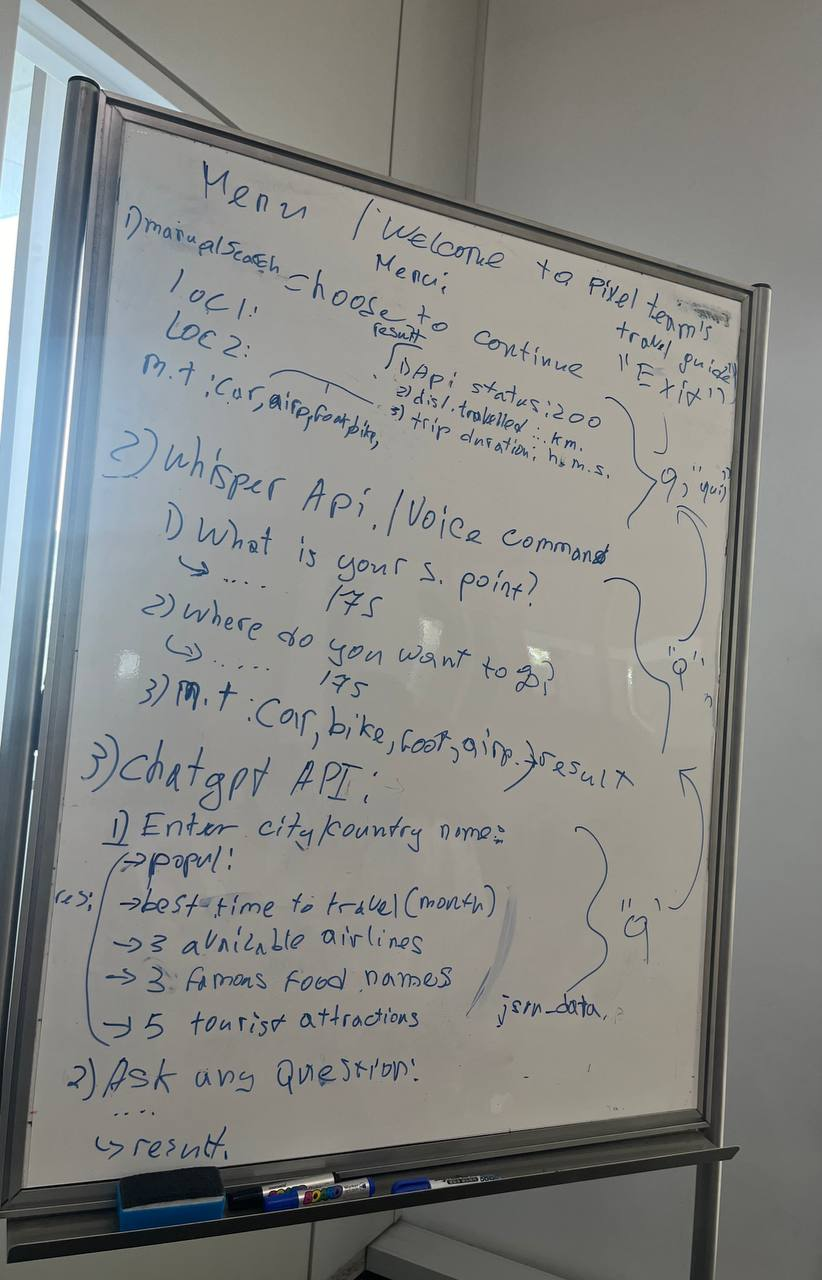 Menu / Welcome to Pixel team's
travel guide"
Menu:
"Exit")
1) manualSearch = choose to continue
Loc1:
Loc2:
m.t : Car, airp, foot, bike,
result
1) Api status: 200
2) dist. travelled : .. km.
3) trip duration: h. m. s.
q, "quit"
2) Whisper Api. / Voice command
1) What is your s. point?
↳ .....
175
2) Where do you want to go?
↳ .....
175
3) m.t : Car, bike, foot, airp. } result
"q"
3) Chatgpt API:
1) Enter city/country name:
res:
→ popul:
→ best time to travel (month)
→ 3 available airlines
→ 3 famous food names
→ 5 tourist attractions
"q"
json_data.
2) Ask any Question:
....
↳ result.
BOARD
BOARD